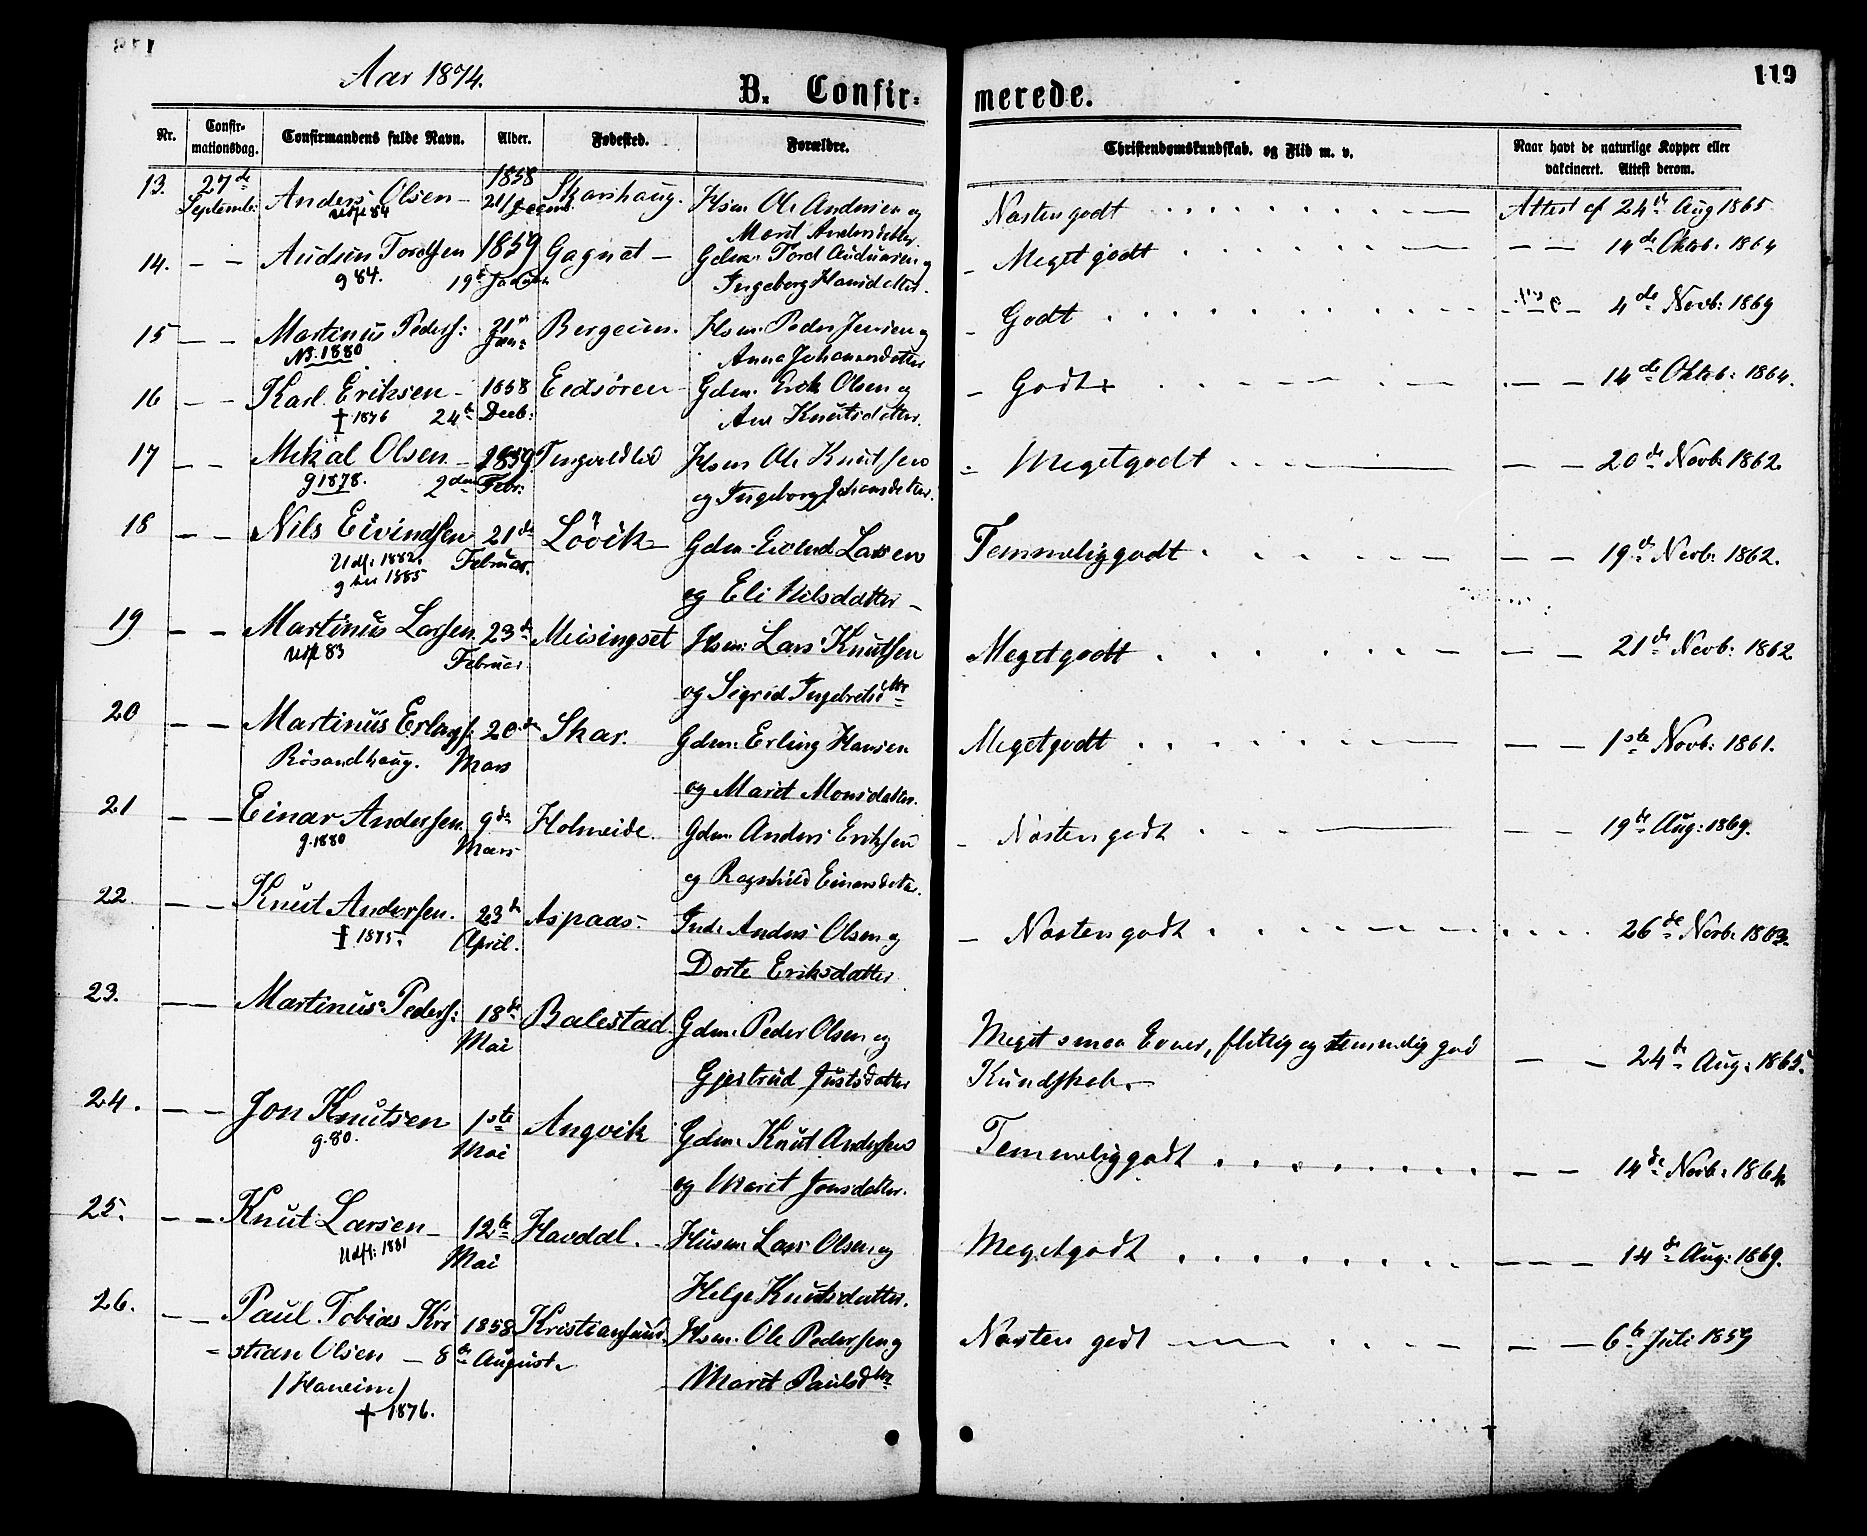 Aar 1874.
B. Confirmerede.
119
Nr. Confirmationsdag. Confirmandens fulde Navn. Alder. Fødested. Forældre. Christendomskundskab, og Flid m. v. Naar havt de naturlige Kopper eller vakcineret. Attest derom.
13. 27de Septemb: Anders Olsen 1858 21/ Decemb: Skarshaug. Hsm. Ole Andersen og Næsten godt Attest af 24de Aug 1865
Udfl 84 Marit Andersdatter.
14. Audun Tordsen 1859 Gagnat Gdm. Tord Audunsen og Meget godt 14de Oktob: 1864
g 84. 19de Januar Ingeborg Hansdatter.
15 Martinus Peders: 21de Jan: Bergeim. Hsm. Peder Jensen og Godt 4de Novb: 1869
N3. 1880 Anna Johannesdatter
16 Karl Eriksen 1858 Eidsören Gdm. Erik Olsen og Godt 14de Oktob: 1864.
† 1876 24de Decb: Ane Knutsdatter.
17 Mikal Olsen 1859 Tingvold Hsm Ole Knutsen Megetgodt 20de Novb. 1862
g 1878. 2den Febr: og Ingeborg Johansdatter.
18 Nils Eivindsen 21de Lövik Gdm. Eivind Larsen Temmeliggodt 19de Novb: 1862.
Udfl: 1882. Februar.
g her 1885 og Eli Nilsdatter
19 Martinus Larsen 23de Meisingset Hsm: Lars Knutsen Megetgodt 21de Novb: 1862
Udfl 83 Februar og Sigrid Ingebretsdtr
20 Martinus Erlings: 20de Skar. Gdm. Erling Hansen Megetgodt 1ste Novb: 1861.
Rösandhaug. Mars og Marit Monsdatter.
21 Einar Andersen. 9de Holmeide. Gdm. Anders Eriksen Næsten godt 19de Aug: 1869.
g. 1880 Mars og Ragnhild Einarsdatter.
22 Knut Andersen. 23de Aspaas. Ind. Anders Olsen og Næsten godt 26de Novb. 1863.
† 1875. April. Dorte Eriksdatter
23. Martinus Peders: 18de Balestad Gdm. Peder Olsen og Meget smaa Evner, flittig og temmelig god 24de Aug: 1865.
Mai Gjertrud Justsdatter Kundskab.
24. Jon Knutsen 1ste Angvik Gdm. Knut Andersen Temmeliggodt 14de Novb: 1864.
g. 80. Mai og Marit Jonsdatter.
25. Knut Larsen 12te Havdal. Husm. Lars Olsen og Megetgodt 14de Aug: 1869.
Udfl: 1881 Mai Helge Knutsdatter.
26. Paul Tobias Kri 1858 Kristiansund Hsm. Ole Pedersen og Næsten godt 6te Juli 1859
stian Olsen 8de August. Marit Paulsdtr
/Haneim/
† 1876.